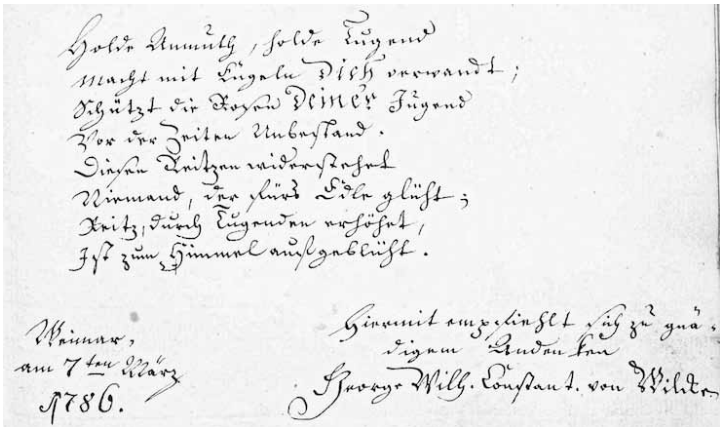 Holde Anmuth, holde Tugend
macht mit Engeln Dich verwandt;
Schützt die Rosen Deiner Jugend
Vor der Zeiten Unbestand.
Diesen Reitzen widerstehet
Niemand, der fürs Edle glüht;
Reitz, durch Tugenden erhöhet,
Ist zum Himmel aufgeblüht.
Weimar,
am 7ten März
1786.
Hiermit empfiehlt sich zu gnä-
digem Andenken
George Wilh. Constant. von Wilcke